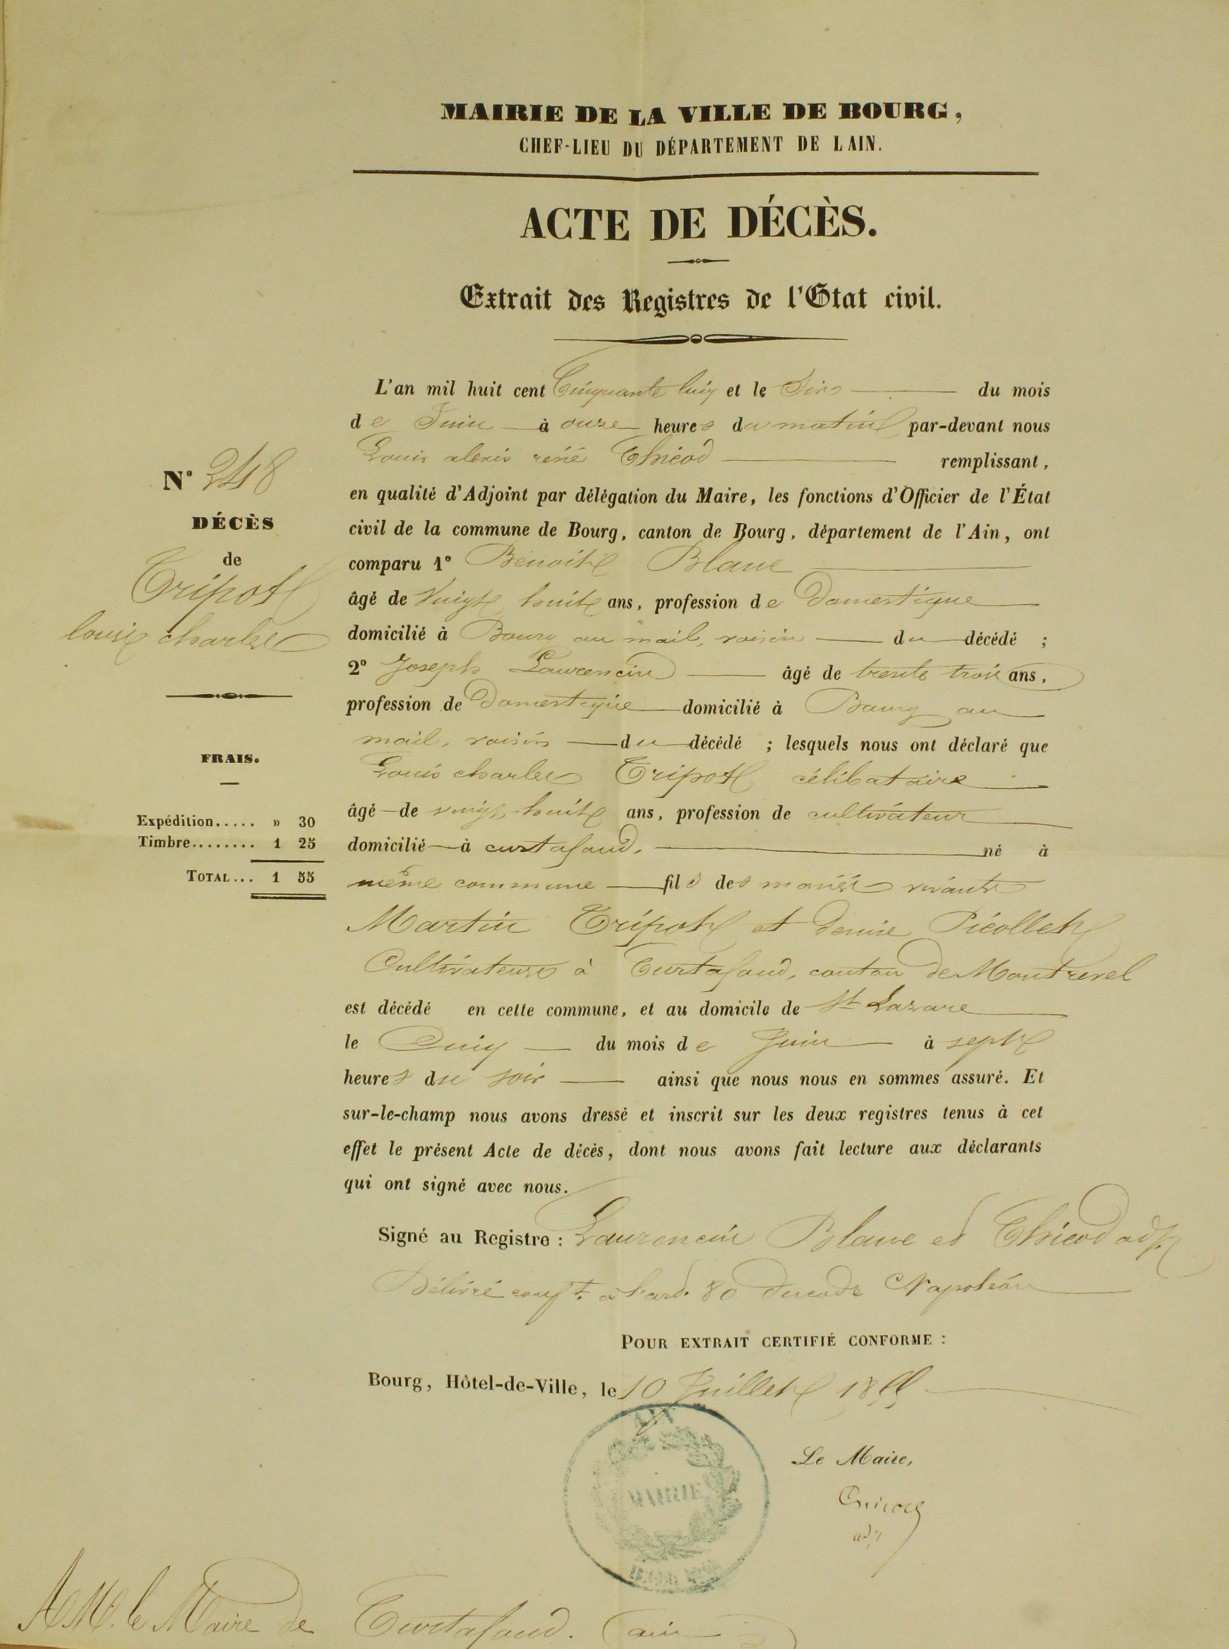 MAIRIE DE LA VILLE DE BOURG,
CHEF-LIEU DU DÉPARTEMENT DE L AIN.
ACTE DE DÉCÈS.
Extrait des Registres de l'Etat civil.
N° 248
DÉCÈS
de
Tripoz
louis charles
FRAIS.
Expédition..... » 30
Timbre........ 1 25
TOTAL... 1 55
L'an mil huit cent Cinquante cinq et le Six du mois
de Juin à onze heures du matin par-devant nous
Louis alexis réné Chicod remplissant,
en qualité d'Adjoint par délégation du Maire, les fonctions d'Officier de l'État
civil de la commune de Bourg, canton de Bourg, département de l'Ain, ont
comparu 1° Benoit Blanc
âgé de Vingt huit ans, profession de Domestique
domicilié à Bourg au mail, voisin du décédé ;
2° Joseph Laurencin âgé de trente trois ans,
profession de Domestique domicilié à Bourg au
mail, voisin du décédé ; lesquels nous ont déclaré que
Louis charles Tripoz célibataire
âgé de vingt huit ans, profession de cultivateur
domicilié à curtafond, né à
même commune fils des mariés vivants
Martin Tripoz et denise Picollet
Cultivateurs à Curtafond, canton de Montrevel
est décédé en cette commune, et au domicile de St Lazare
le Cinq du mois de Juin à sept
heures du soir ainsi que nous nous en sommes assuré. Et
sur-le-champ nous avons dressé et inscrit sur les deux registres tenus à cet
effet le présent Acte de décès, dont nous avons fait lecture aux déclarants
qui ont signé avec nous.
Signé au Registre : Laurencin Blanc et Chicod adj.
Délivré conft. à l'art. 80 du code Napoléon
POUR EXTRAIT CERTIFIÉ CONFORME :
Bourg, Hôtel-de-Ville, le 10 Juillet 1855
Le Maire,
Chicod
adj
AIN
MAIRIE
A M. le Maire de Curtafond. (ain)